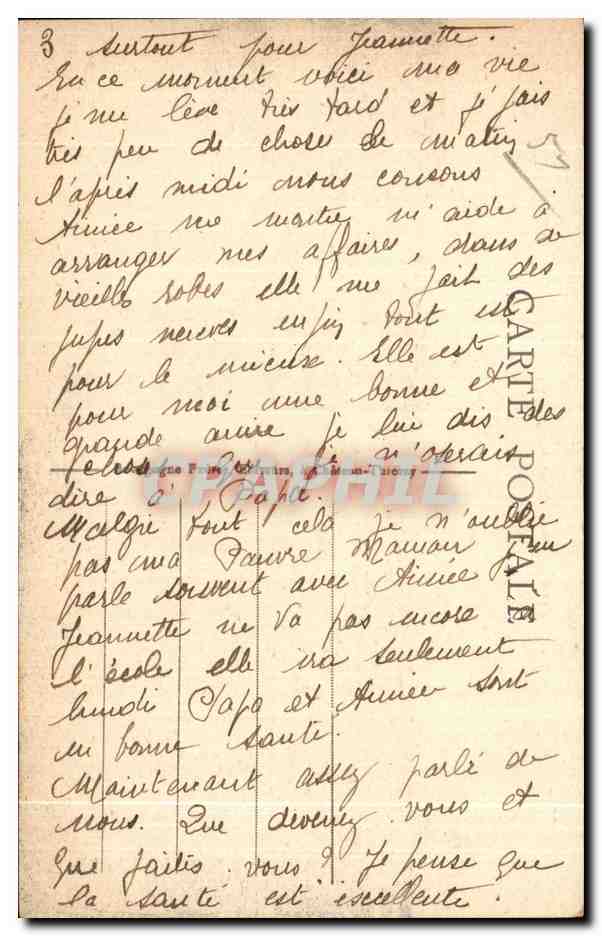 3 surtout pour Jeannette.
En ce moment voici ma vie
je me lève très tard et je fais
très peu de choses le matin
57
l'après midi nous cousons
Aimée me montre m'aide à
arranger mes affaires, dans de
vieilles robes elle me fait des
jupes neuves enfin tout est
pour le mieux. Elle est
pour moi une bonne et
grande amie je lui dis des
choses que je n'oserais
dire à Papa.
Malgré tout cela je n'oublie
pas ma Pauvre Maman j'en
parle souvent avec Aimée
Jeannette ne va pas encore à
l'école elle ira seulement
lundi Papa et Aimée sont
en bonne santé.
Maintenant assez parlé de
nous. Que devenez vous et
que faites vous? Je pense que
la santé est excellente.
CARTE POSTALE
Frères, à Château-Thierry
CPAPHIL